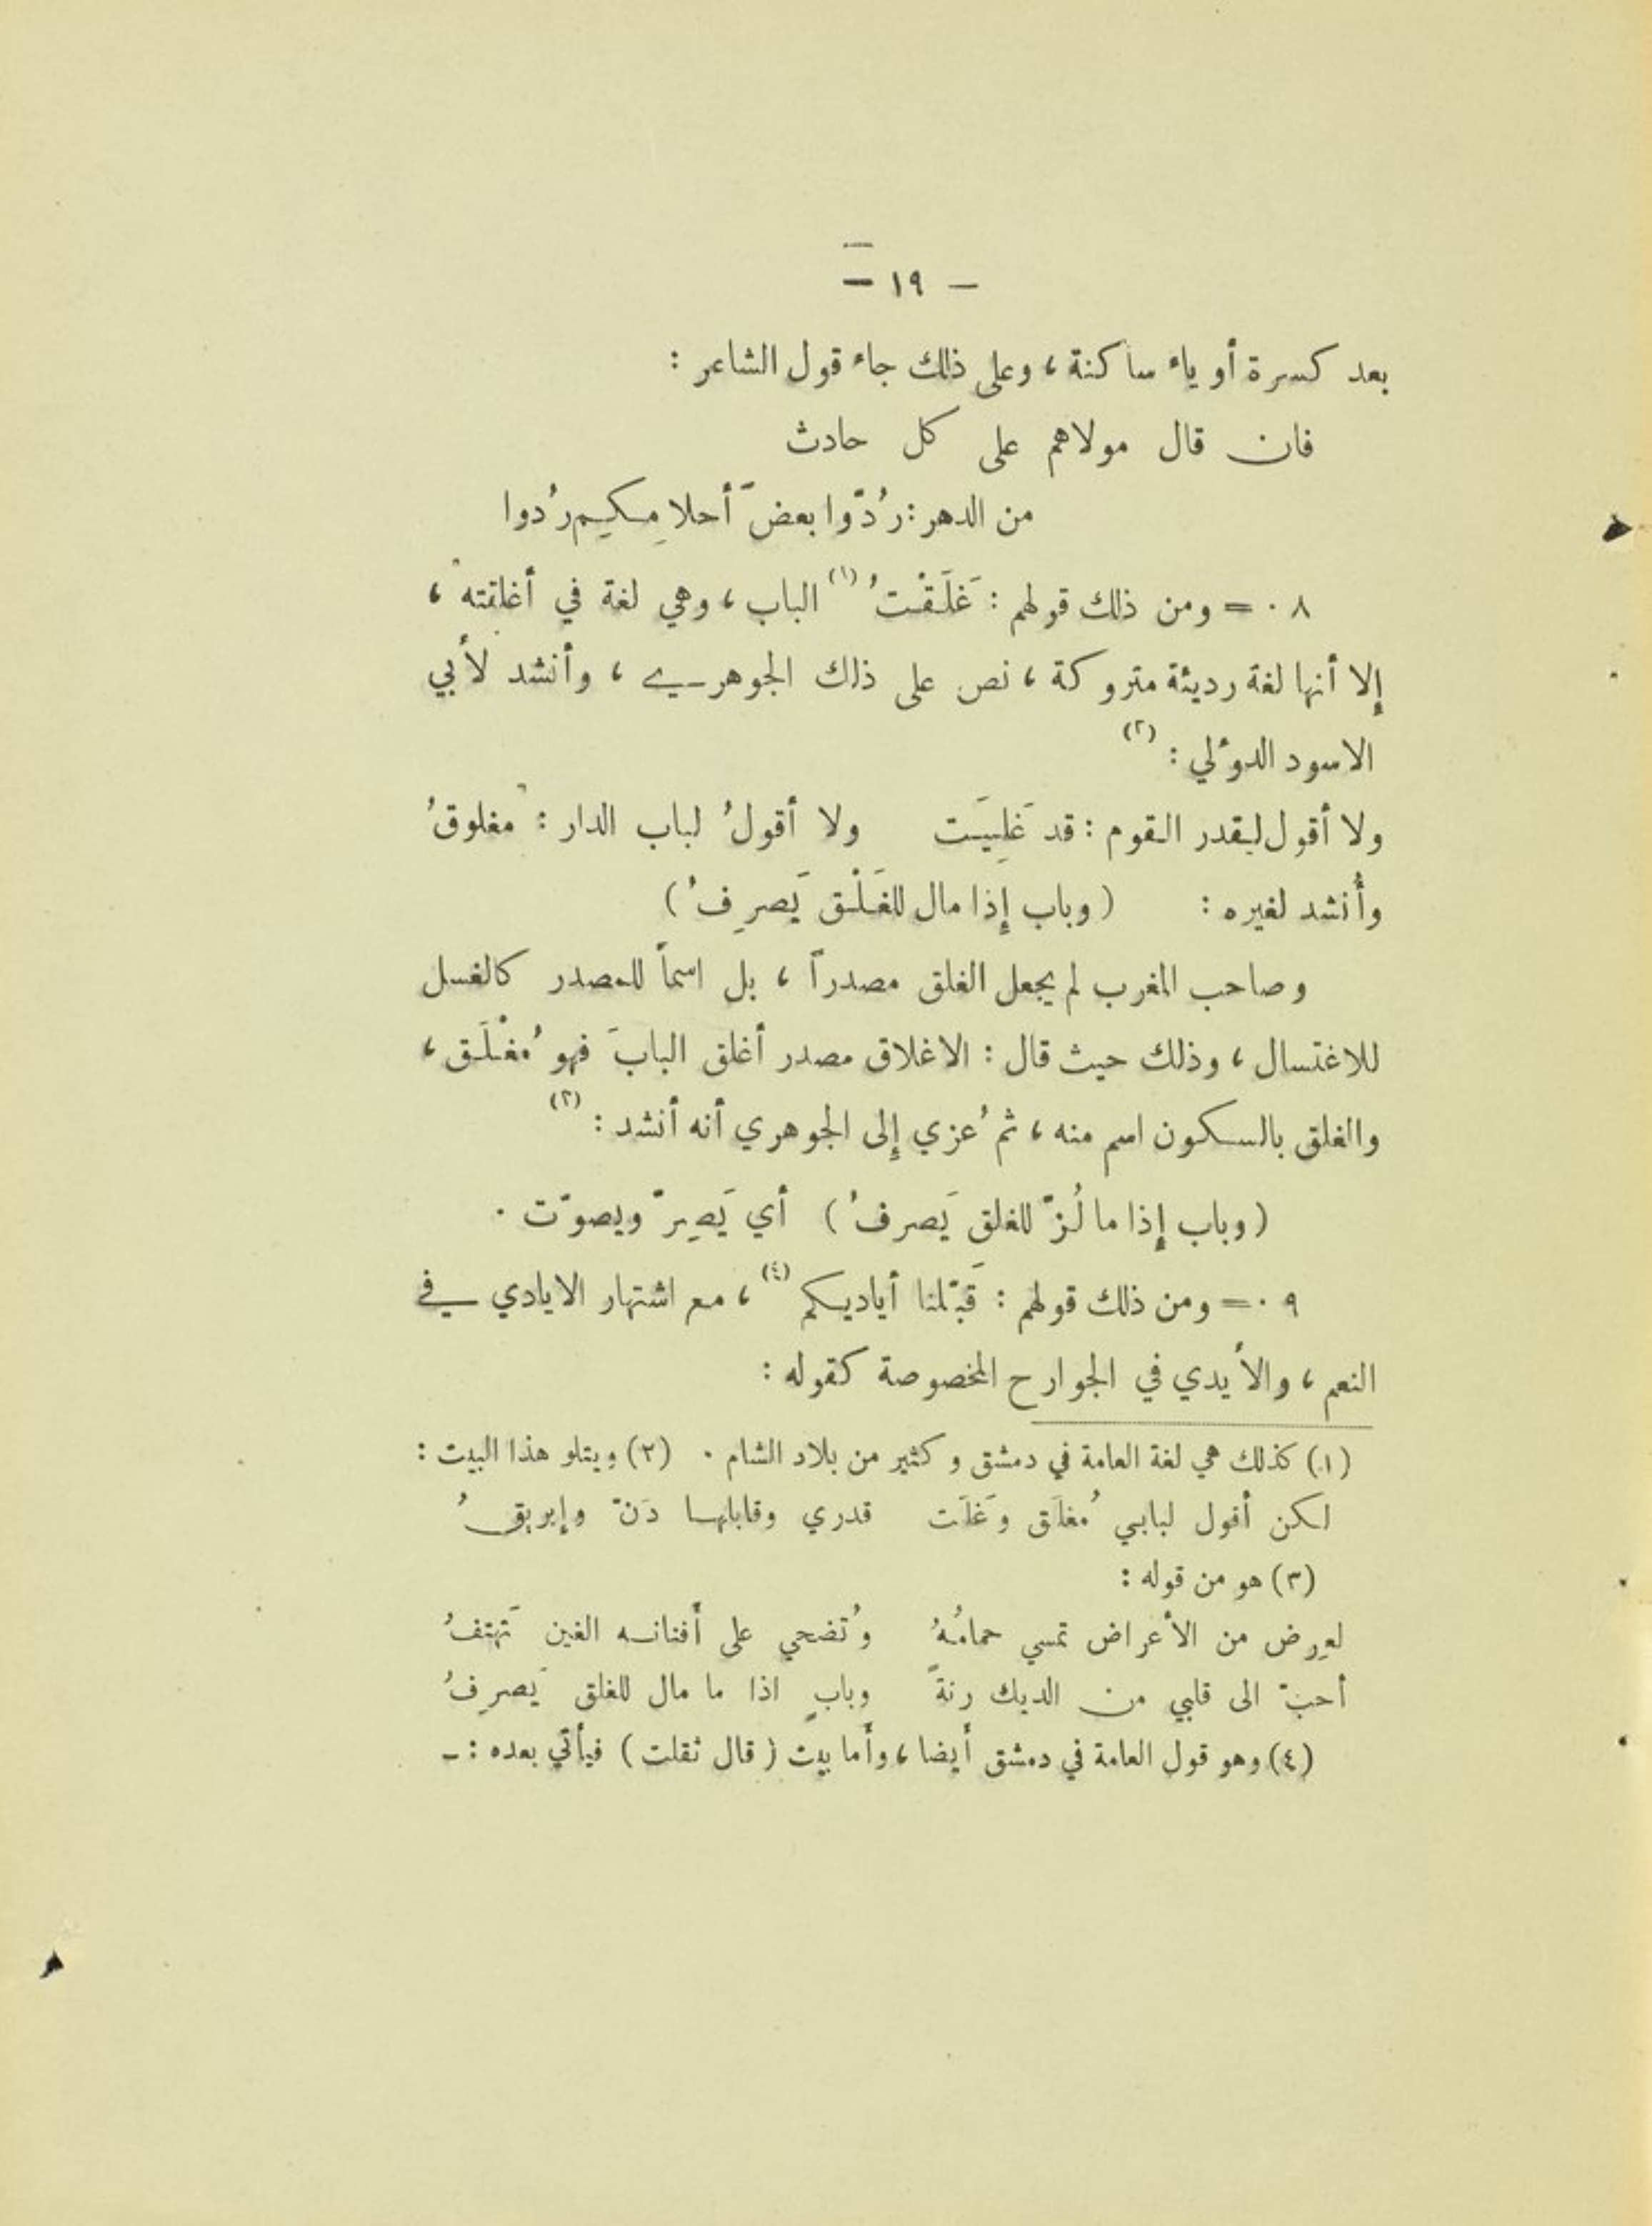 — ١٩ —
بعد كسرة أو ياء ساكنة ، وعلى ذلك جاء قول الشاعر :
فان قال مولاهم على كل حادث
من الدهر : رُدّوا بعضَ أحلامِكِيم رُدوا
٠٨ = ومن ذلك قولهم : غَلَقْتُ (١) الباب ، وهي لغة في أغلقته ،
إلا أنها لغة رديئة متروكة ، نص على ذلك الجوهري ، وأنشد لأبي
الاسود الدؤلي : (٢)
ولا أقول لقدر القوم : قد غَلِيَت ولا أقولُ لباب الدار : مغلوقُ
وأُنشد لغيره : ( وباب إذا مال للغَلْق يَصرِفُ )
وصاحب المغرب لم يجعل الغلق مصدراً ، بل اسماً للمصدر كالغسل
للاغتسال ، وذلك حيث قال : الاغلاق مصدر أغلق البابَ فهو مُغْلَق ،
والغلق بالسكون اسم منه ، ثم عُزي إلى الجوهري أنه أنشد : (٣)
( وباب إذا ما لُزّ للغلق يَصرفُ ) أي يَصِرّ ويصوّت .
٠٩ = ومن ذلك قولهم : قَبّلنا أياديكم (٤) ، مع اشتهار الايادي في
النعم ، والأيدي في الجوارح المخصوصة كقوله :
(١) كذلك هي لغة العامة في دمشق وكثير من بلاد الشام . (٢) ويتلو هذا البيت :
لكن أقول لبابي مُغلَق وغَلَت قدري وقابلها دَنّ وإبريقُ
(٣) هو من قوله :
لعِرض من الأعراض تمسي حمامُهُ وتُضحي على أفنانه الغين تَهتفُ
أحبّ الى قلبي من الديك رنةً وبابٍ اذا ما مال للغلق يَصرِفُ
(٤) وهو قول العامة في دمشق أيضا ، وأما بيت ( قال ثقلت ) فيأتي بعده : -